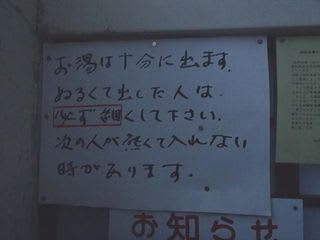 お湯は十分に出ます.
ぬるくて出した人は.
必ず細くして下さい.
次の人が熱くて入れない
時があります.
お知らせ